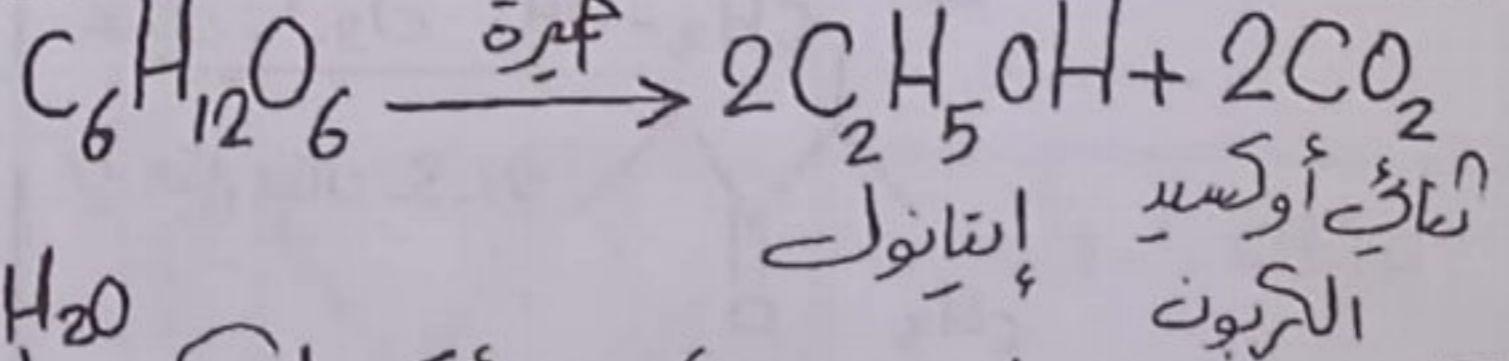 C₆H₁₂O₆ —خميرة→ 2C₂H₅OH + 2CO₂
إيتانول ثنائي أوكسيد
الكربون
H₂O